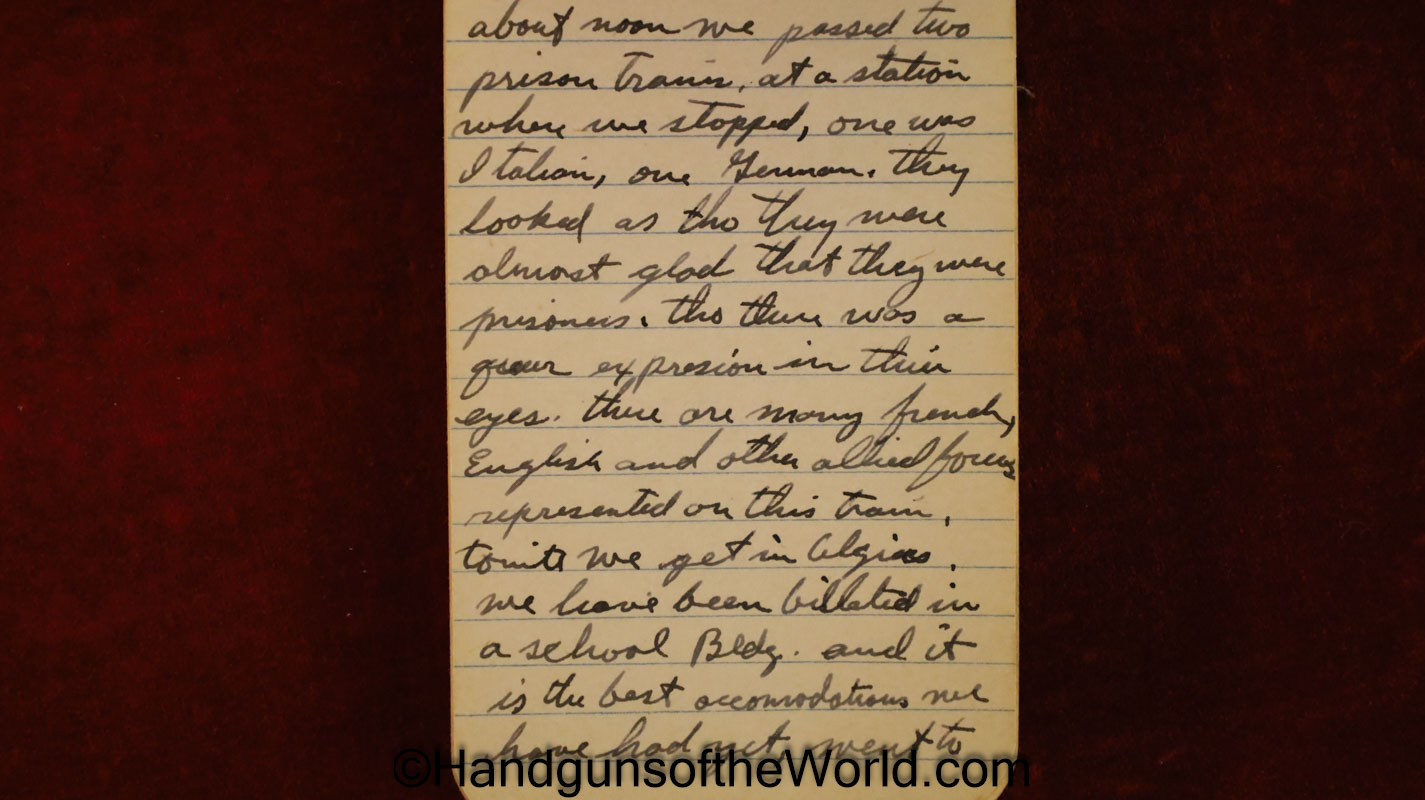 about noon we passed two
prison trains, at a station
where we stopped, one was
Italian, one German. they
looked as tho they were
almost glad that they were
prisoners. tho there was a
queer expresion in their
eyes. there are many french,
English and other allied forces
represented on this train.
tonite we get in Algiers.
we have been billeted in
a school Bldg. and it
is the best accomodations we
have had yet. went to
©HandgunsoftheWorld.com